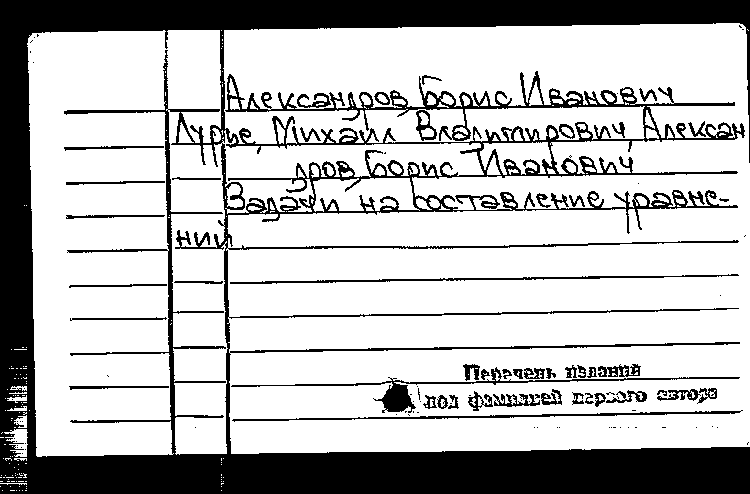 Александров, Борис Иванович
Лурие, Михаил Владимирович, Алексан
дров, Борис Иванович
Задачи на составление уравне-
ний.
Перечень изданий
под фамилией первого автора